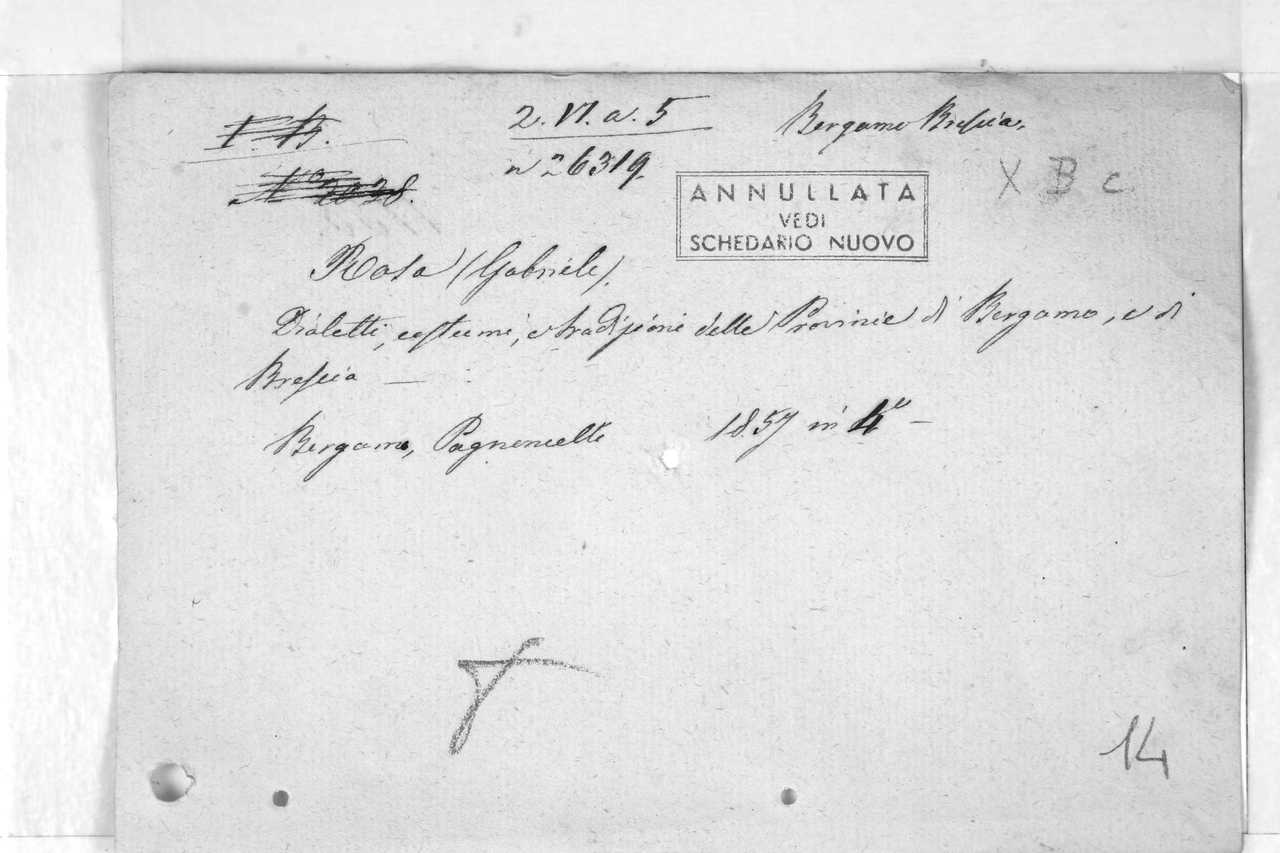 I. B.
2. VI. a. 5
Bergamo Brescia.
N.° 2028.
n 26319.
X B c
ANNULLATA
VEDI
SCHEDARIO NUOVO
Rosa (Gabriele).
Dialetti, costumi, e tradizioni delle Provincie di Bergamo, e di
Brescia —
Bergamo, Pagnoncelli 1857 in 4° —
14